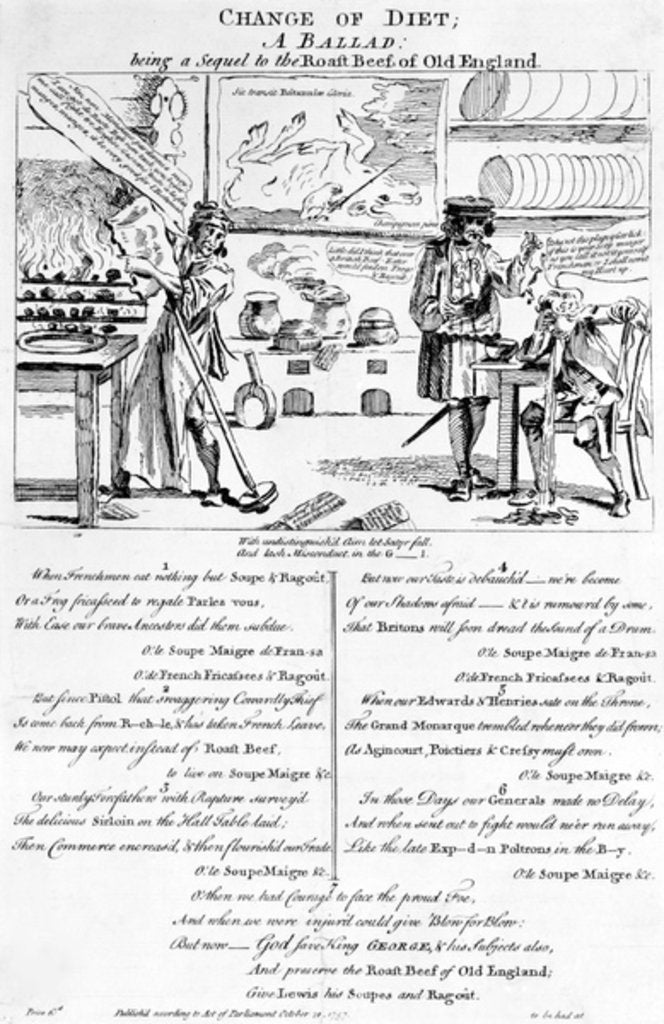 CHANGE OF DIET;
A BALLAD:
being a Sequel to the Roast Beef of Old England.
Sic transit Britannia Gloria.
Champignon pinx
Little did I think that ever
a British Beef Eater
would feed on Frogs
& Ragout
With undistinguish'd Aim let Satyr fall,
And lash Misconduct in the G___l.
1
When Frenchmen eat nothing but Soupe & Ragout,
Or a Frog fricaseed to regale Parles vous,
With Ease our brave Ancestors did them subdue.
O! le Soupe Maigre de Fran-sa
O! de French Fricasees & Ragout.
2
But since Pistol that swaggering Cowardly Thief
Is come back from R-ch-le, & has taken French Leave,
We now may expect instead of Roast Beef,
to live on Soupe Maigre &c.
3
Our sturdy Forefathers with Rapture survey'd
The delicious Sirloin on the Hall Table laid;
Then Commerce encreas'd, & then flourish'd our Trade.
O! le Soupe Maigre &c.
4
But now our Taste is debauch'd — we're become
Of our Shadows afraid — & t is rumour'd by some,
That Britons will soon dread the Sound of a Drum.
O! le Soupe Maigre de Fran-sa
O! de French Fricasees & Ragout.
5
When our Edwards & Henries sate on the Throne,
The Grand Monarque trembled whene'er they did frown;
As Agincourt, Poictiers & Cressy must own.
O! le Soupe Maigre &c.
6
In those Days our Generals made no Delay,
And when sent out to fight would ne'er run away,
Like the late Exp—d—n Poltrons in the B—y.
O! le Soupe Maigre &c.
7
O! then we had Courage to face the proud Foe,
And when we were injur'd could give Blow for Blow:
But now — God save King GEORGE, & his Subjects also,
And preserve the Roast Beef of Old England;
Give Lewis his Soupes and Ragout.
Price 6d
Publish'd according to Act of Parliament October 1757.
to be had at